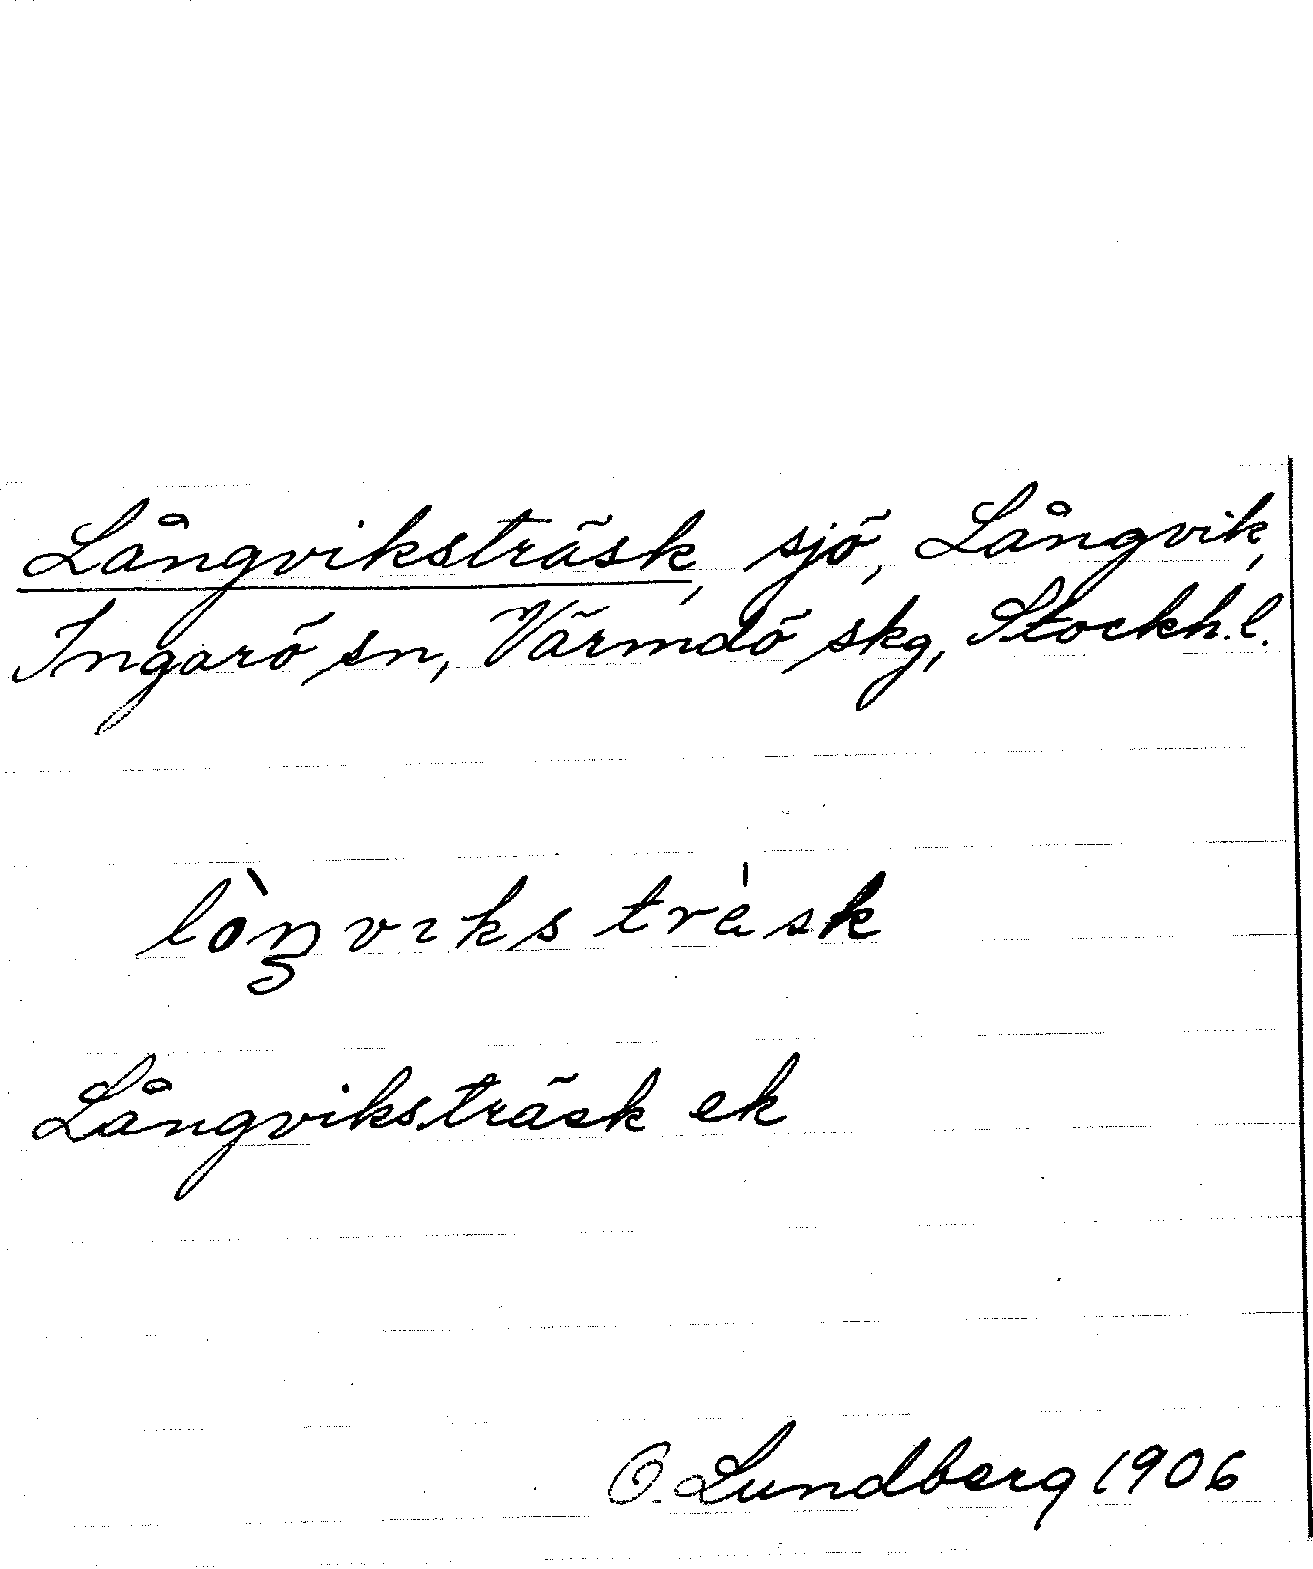 Långviksträsk, sjö, Långvik,
Ingarö sn, Värmdö skg, Stockh. l.
lòŋvɩkstrȧsk
Långviksträsk ek
O. Lundberg 1906